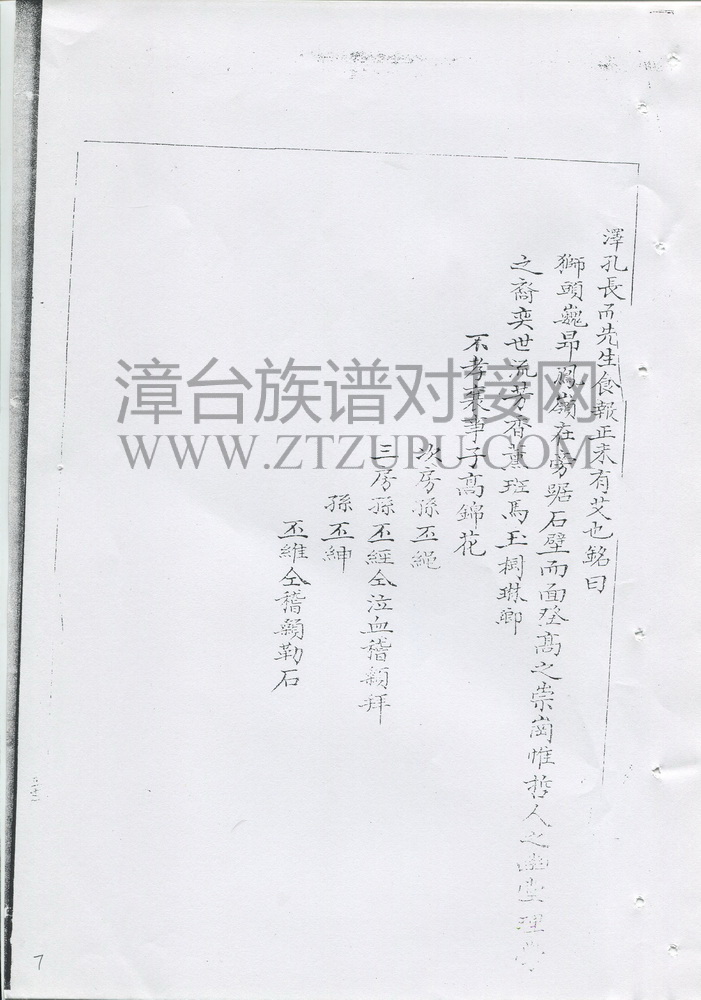 澤孔長而先生食報正未有艾也銘曰
獅頭巍昂鳳嶺在旁踞石壁而面登髙之崇崗惟哲人之幽堂理學
之裔奕世流芳香薰班馬玉樹琳瑯
不孝哀事子髙錦花
次房孫丕繩
三房孫丕經仝泣血稽顙拜
孫丕紳
丕維仝稽顙勒石
漳台族谱对接网
WWW.ZTZUPU.COM
7